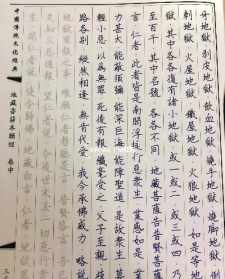 牙地獄 剝皮地獄 飲血地獄 燒手地獄 燒腳地獄 倒
刺地獄 火屋地獄 鐵屋地獄 火狼地獄 如是等地
獄 其中各各復有諸小地獄 或一 或二 或三 或四 乃
至百千 其中名號 各各不同 地藏菩薩告普賢菩薩
言 仁者 此者皆是南閻浮提行惡眾生 業感如是 業
力甚大 能敵須彌 能深巨海 能障聖道 是故眾生 莫
輕小惡 以為無罪 死後有報 纖毫受之 父子至親 歧
路各別 縱然相逢 無肯代受 我今承佛威力 略說
地獄罪報之事 唯願仁者暫聽是言 普賢
中國傳統文化經典
地藏菩薩本願經 卷中